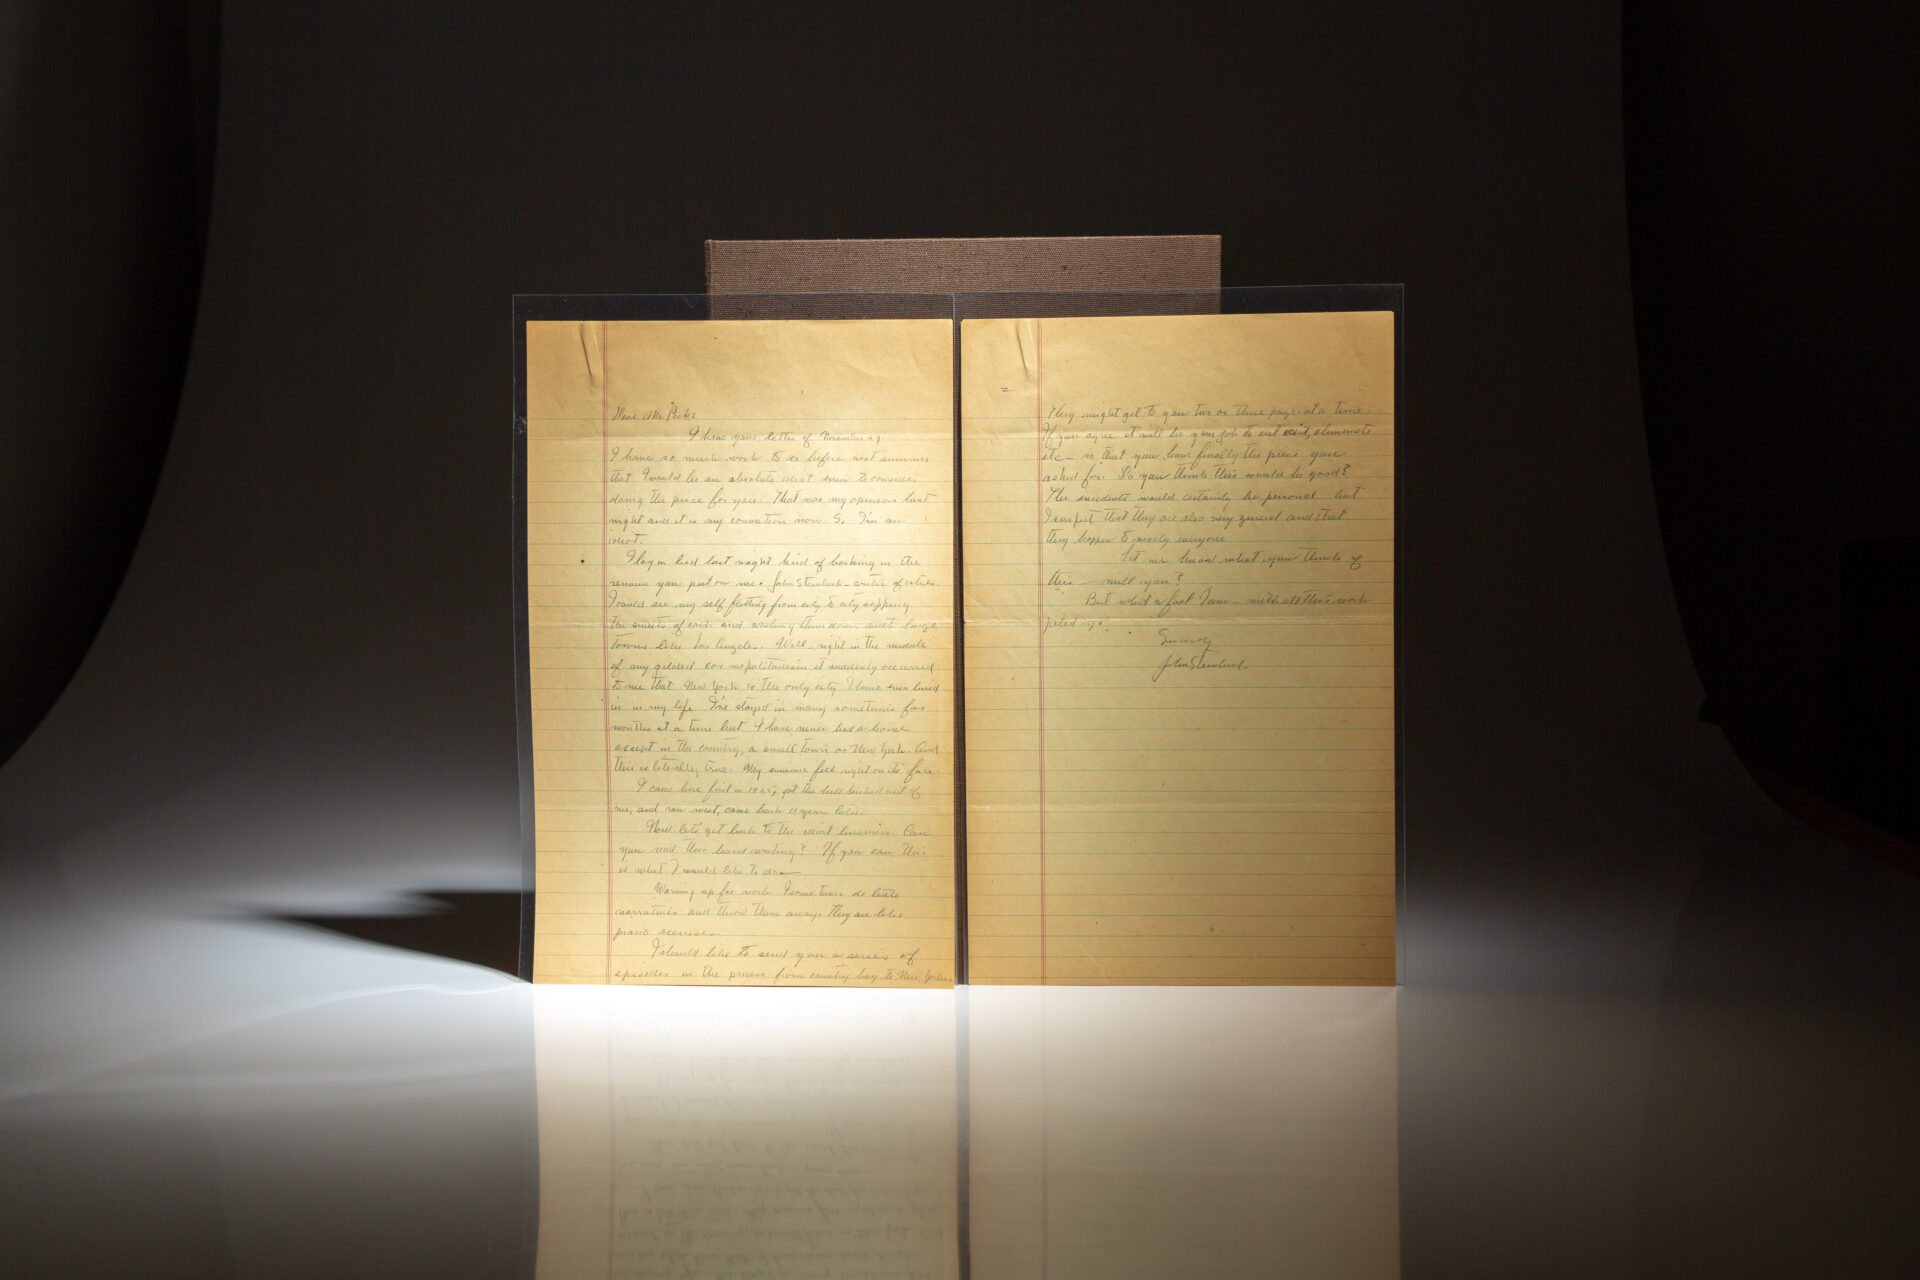 Dear Mr. Peck:
I have your letter of November 29.
I have so much work to do before next summer
that I would be an absolute idiot even to consider
doing the piece for you. That was my opinion last
night and it is my conviction now. So I'm an
idiot.
I lay in bed last night kind of basking in the
renown you put on me. John Steinbeck – critic of cities.
I could see my self flitting from city to city sipping
the sweets of each and washing them down with large
towns like Los Angeles. Well – right in the middle
of my gilded cosmopolitanism it suddenly occurred
to me that New York is the only city I have ever lived
in in my life. I've stayed in many sometimes for
months at a time but I have never had a home
except in the country, a small town or New York. And
this is literally true. My eminence fell right on its face.
I came here first in 1925, got the hell kicked out of
me, and ran west, came back 11 years later.
Now let's get back to the idiot business. Can
you read this hand writing? If you can, this
is what I would like to do —
Warming up for work I some times do little
narratives and throw them away. They are like
piano exercises.
I should like to send you a series of
episodes in the process from country boy to New Yorker
2
They might get to you two or three pages at a time.
If you agree it will be your job to cut edit, eliminate
etc – so that you have finally the piece you
asked for. Do you think this would be good?
The incidents would certainly be personal but
I suspect that they are also very general and that
they happen to nearly everyone
Let me know what you think of
this — will you?
But what a fool I am – with all this work
piled up.
Sincerely
John Steinbeck